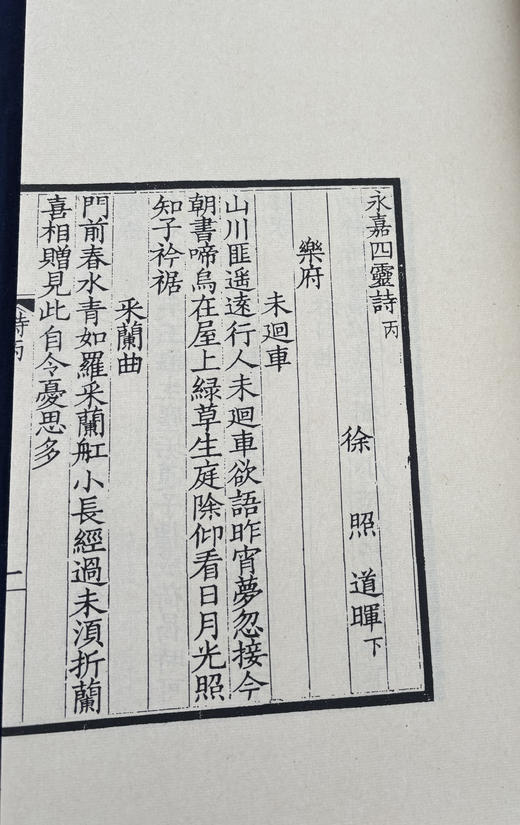 永嘉四靈詩丙
徐照道暉下
樂府
未迴車
山川匪遥逺行人未迴車欲語昨宵夢忽接今
朝書啼烏在屋上緑草生庭除仰看日月光照
知子衿裾
采蘭曲
門前春水青如羅采蘭舡小長經過未湏折蘭
喜相贈見此自令憂思多
詩丙
二